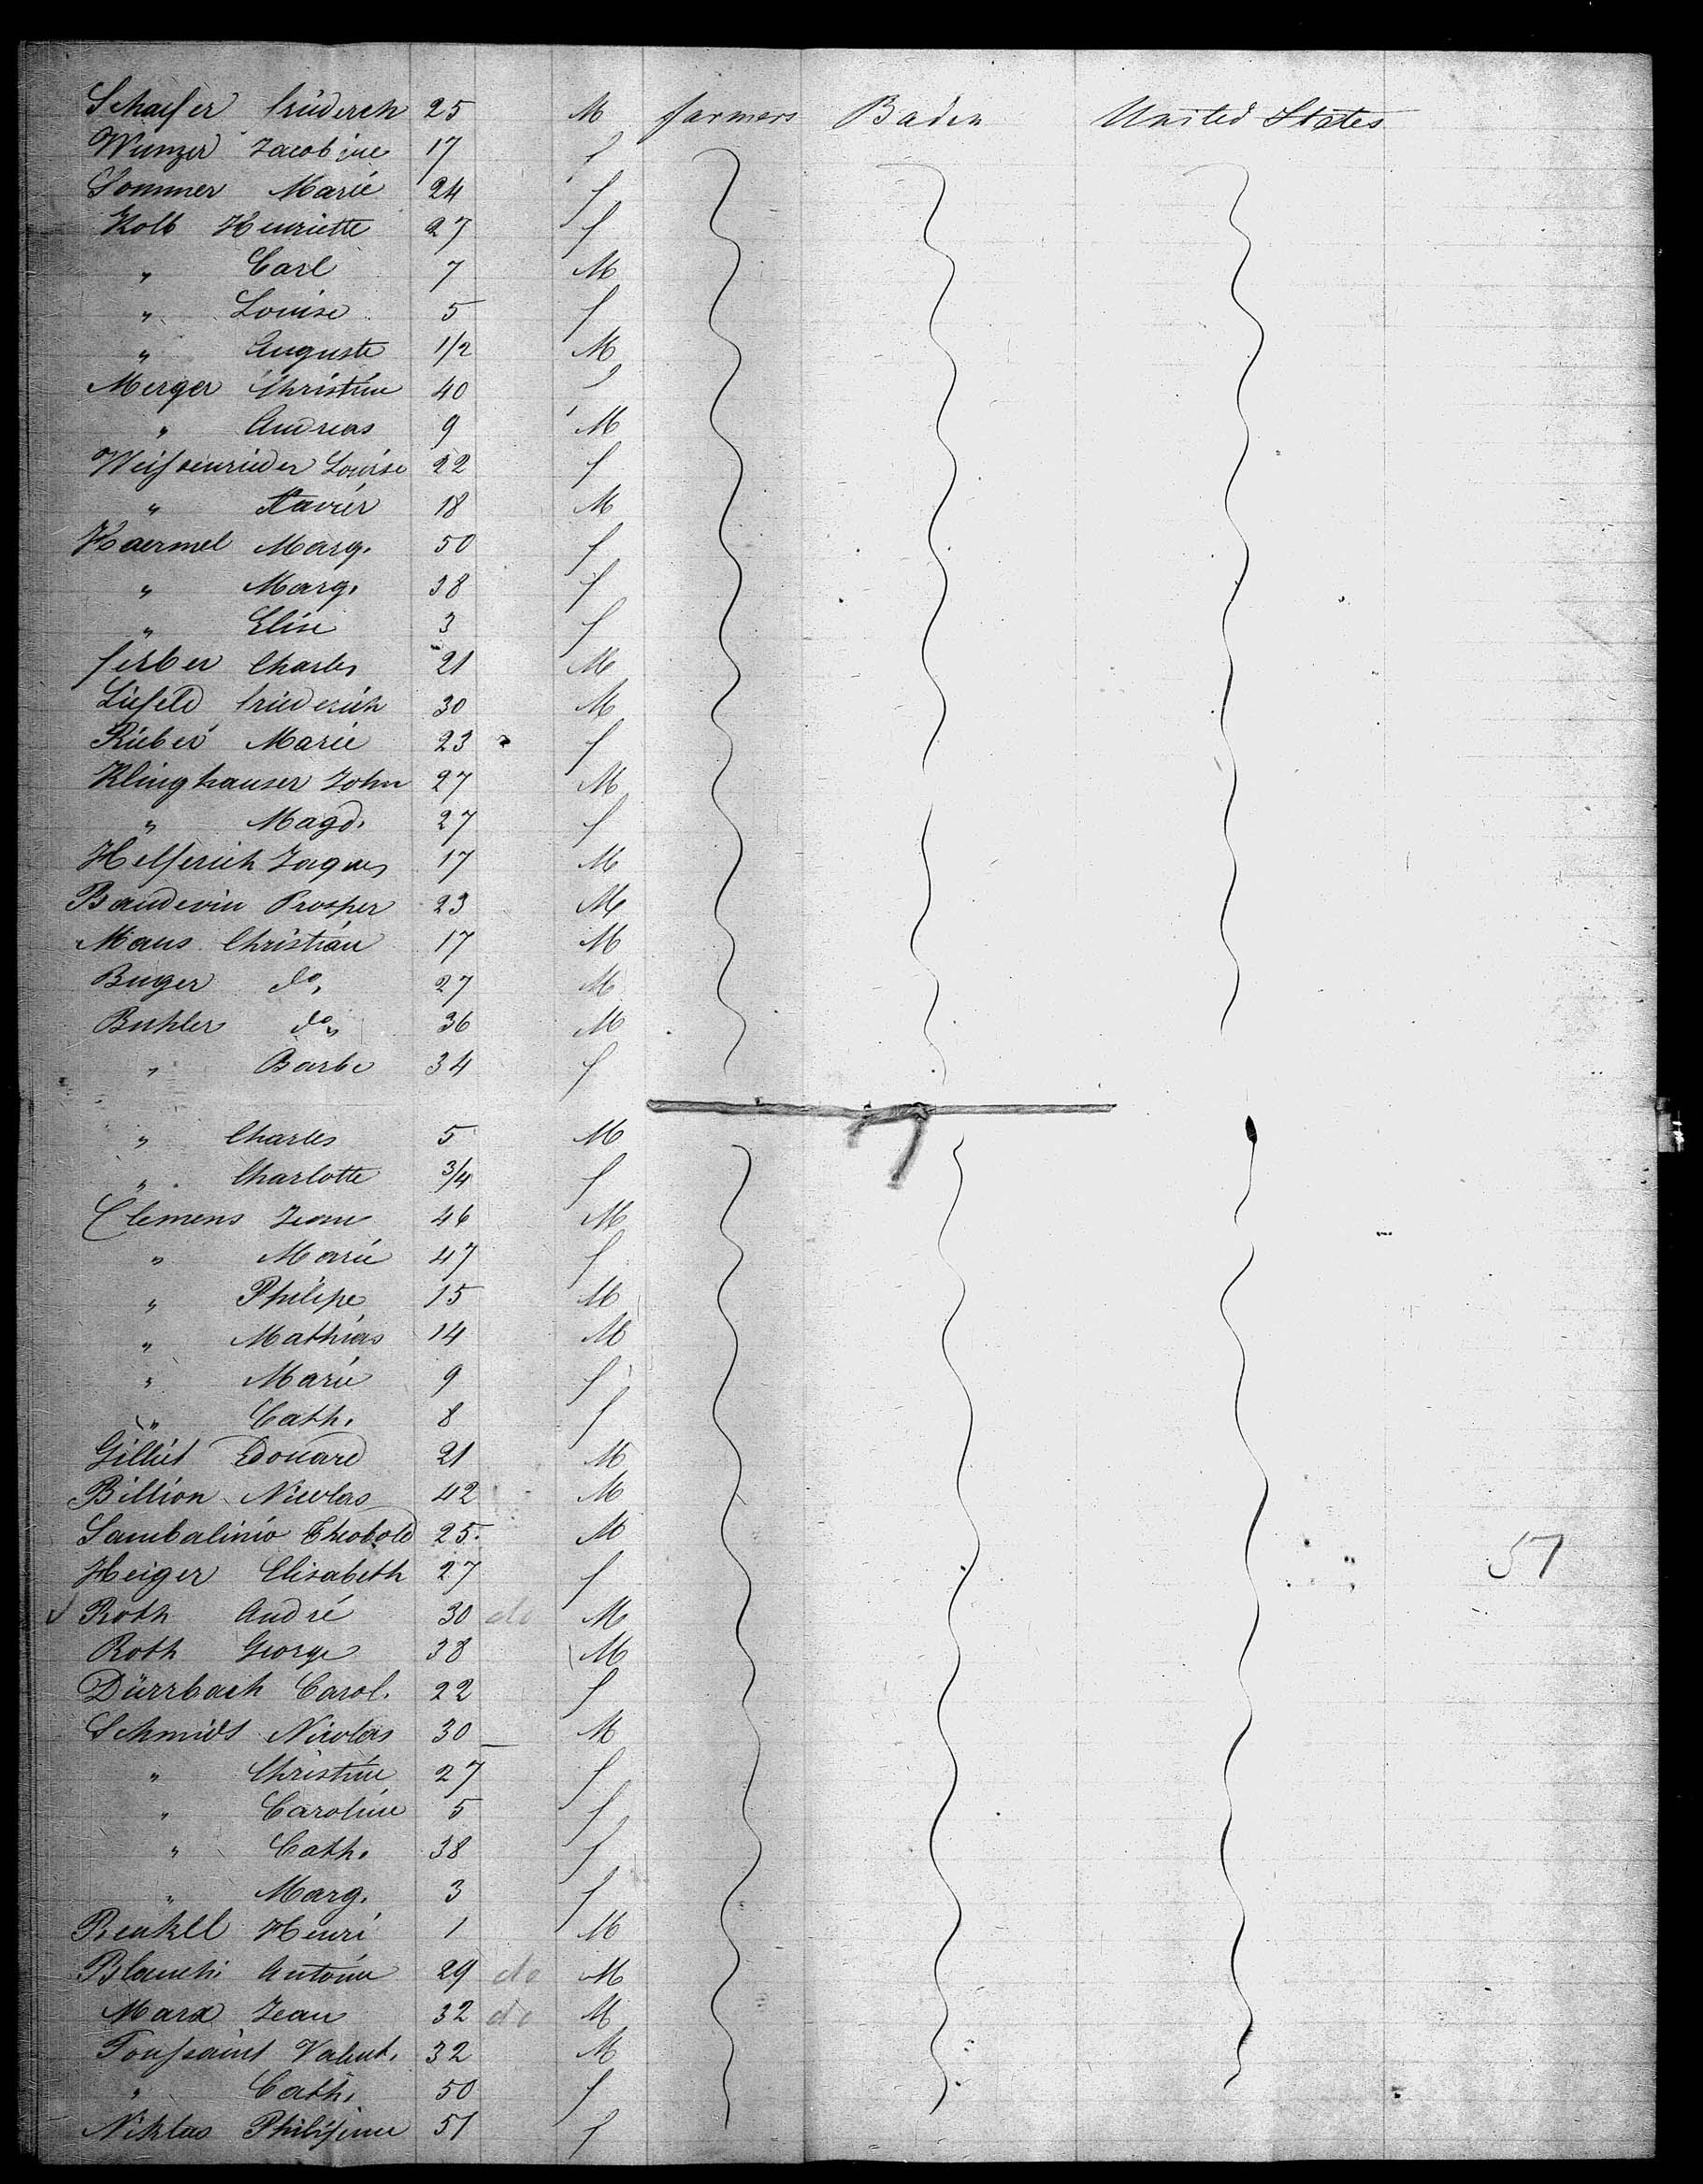 Schaefer friederch 25 M farmers Baden United States
Wunzer Jacobine 17 f
Sommer Marie 24 f
Kolb Henriette 27 f
" Carl 7 M
" Louise 5 f
" Auguste 1/2 M
Merger Christine 40 f
" Andreas 9 M
Weissenrieder Louise 22 f
" Xavier 18 M
Haermel Marg. 50 f
" Marg. 38 f
" Elise 3 f
ferber Charles 21 M
Liefeld friederich 30 M
Rieber Marie 23 f
Klinghauser John 27 M
" Magd. 27 f
Helferich Jaques 17 M
Baudevin Prosper 23 M
Maus Christian 17 M
Buger do, 27 M
Buhler do " 36 M
" Barbe 34 f
" Charles 5 M
" Charlotte 3/4 f
Clemens Jean 46 M
" Marie 47 f
" Philipe 15 M
" Mathias 14 M
" Marie 9 f
" Cath. 8 f
Gilliet Edouard 21 M
Billion Nicolas 42 M
Sambalinio Theobold 25. M 57
Heiger Elisabeth 27 f
Roth André 30 do M
Roth George 38 M
Dürrbach Carol. 22 f
Schmidt Nicolas 30 M
" Christine 27 f
" Caroline 5 f
" Cath. 38 f
" Marg. 3 f
Henri 1 M
Antoine 29 do M
Marx Jean 32 do M
Toussaint Valent. 32 M
" Cath. 50 f
Niklas Philipine 51 f